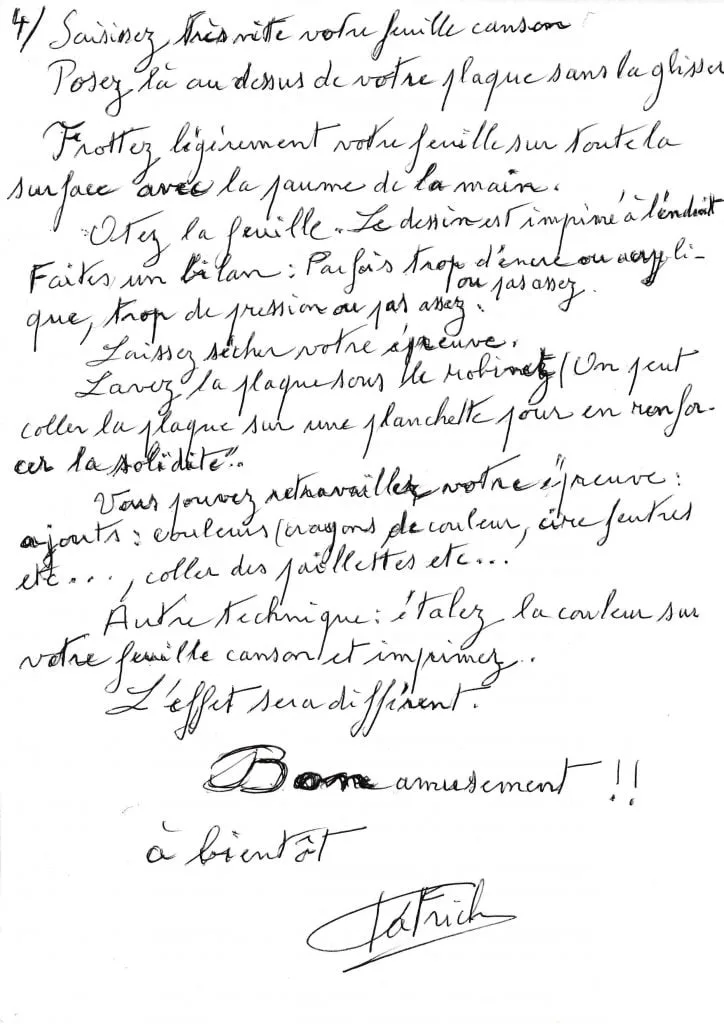 4/ Saisissez très vite votre feuille canson
Posez là au dessus de votre plaque sans la glisser
Frottez légèrement votre feuille sur toute la
surface avec la paume de la main.
Otez la feuille. Le dessin est imprimé à l'endroit
Faites un bilan : Parfois trop d'encre ou acryli-
ou pas assez.
que, trop de pression ou pas assez.
Laissez sécher votre épreuve.
Lavez la plaque sous le robinet (On peut
coller la plaque sur une planchette pour en renfor-
cer la solidité..
Vous pouvez retravailler votre épreuve :
ajouts : couleurs (crayons de couleur, cire feutres
etc..., coller des paillettes etc...
Autre technique : étalez la couleur sur
votre feuille canson et imprimez..
L'effet sera différent.
Bon amusement !!
à bientôt
Patrick